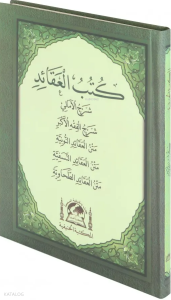 كتب العقائد
شرح الأمالي
شرح الفقه الأكبر
متن العقائد النونية
متن العقائد النسفية
متن العقائد الطحاوية
المكتبة الحنيفية